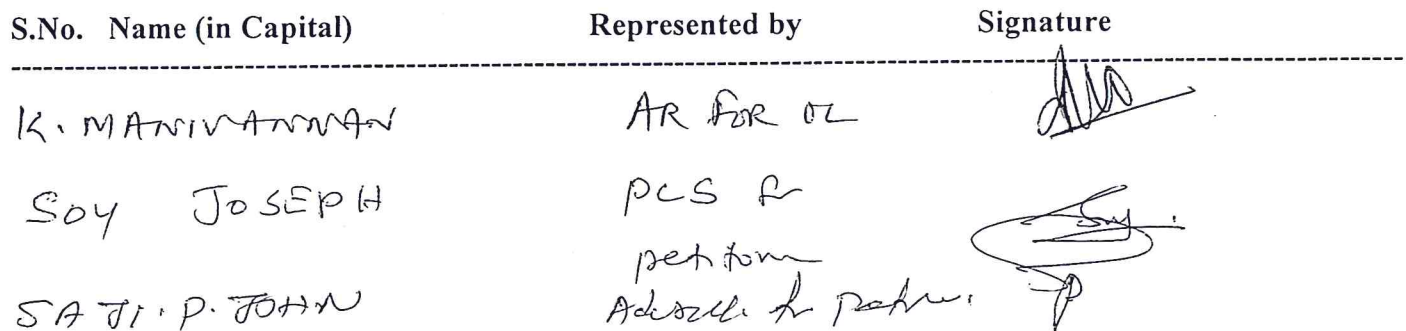 S.No. Name (in Capital) Represented by Signature
K. MANIVANNAN AR FOR OL
SOY JOSEPH PCS for
petitioner
SAJI. P. JOHN Advocate for petitioner.